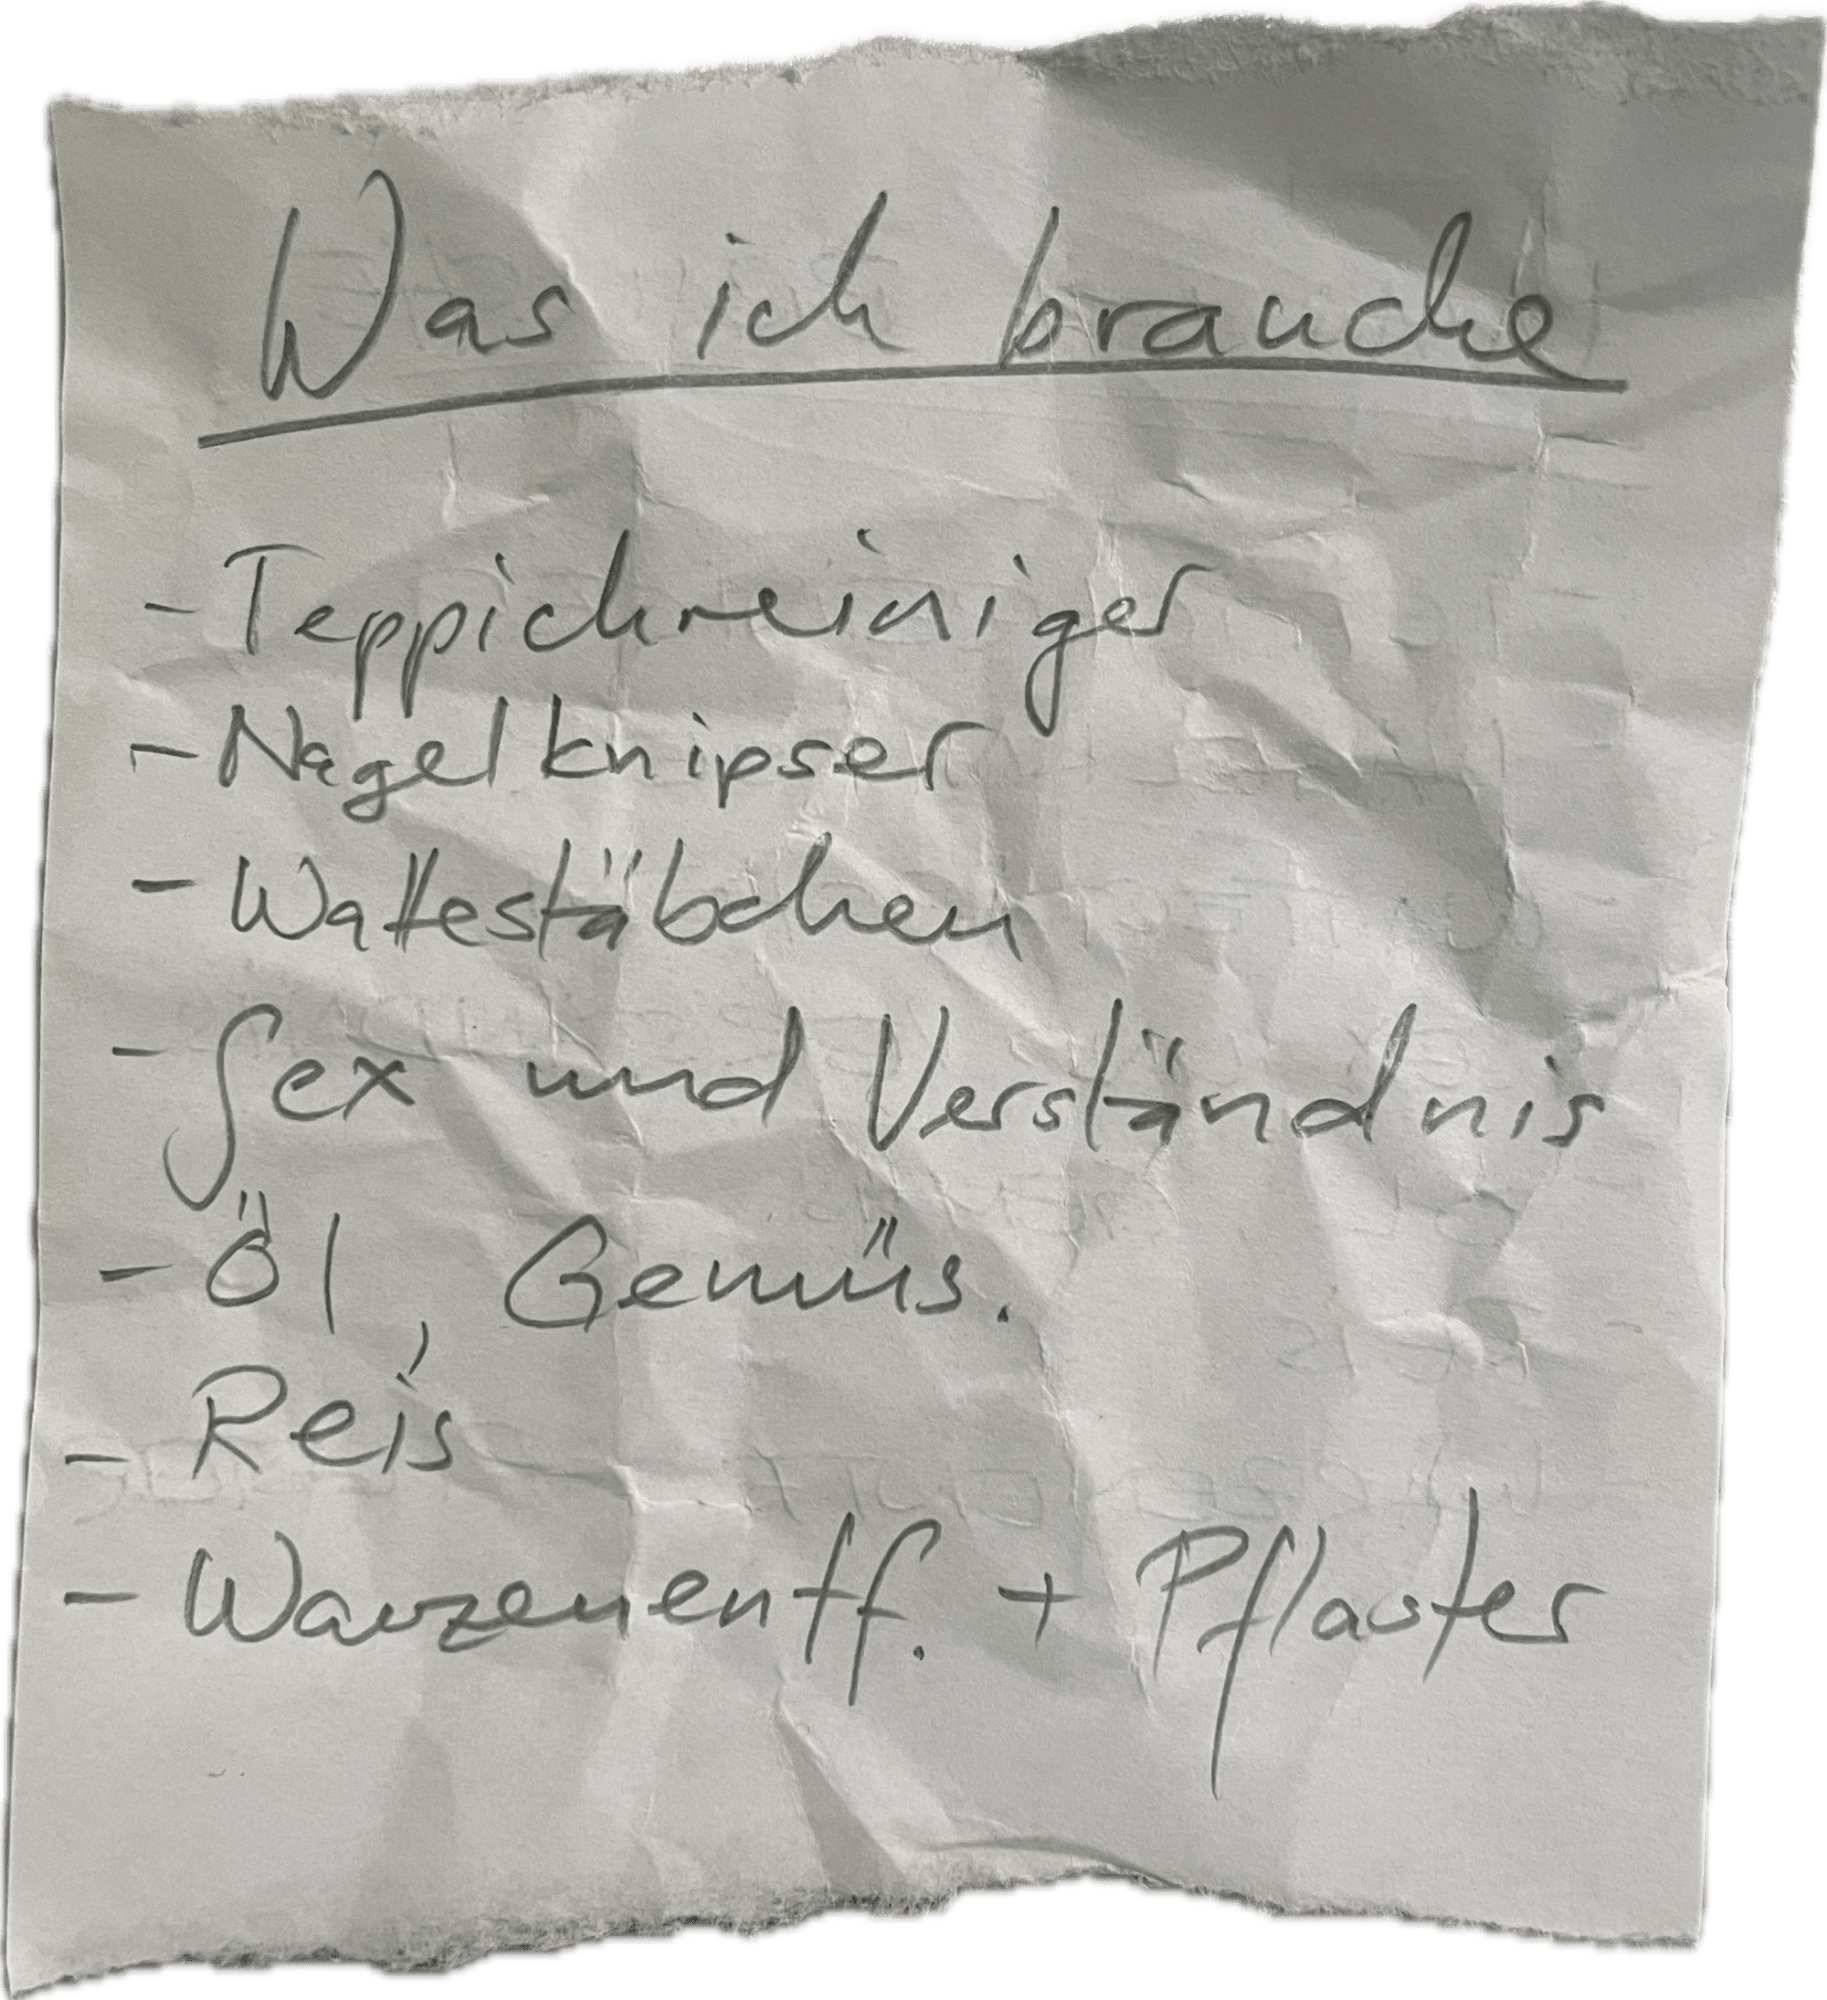 Was ich brauche
- Teppichreiniger
- Nagelknipser
- Wattestäbchen
- Sex und Verständnis
- Öl, Gemüs.
- Reis
- Warzenentf. + Pflaster